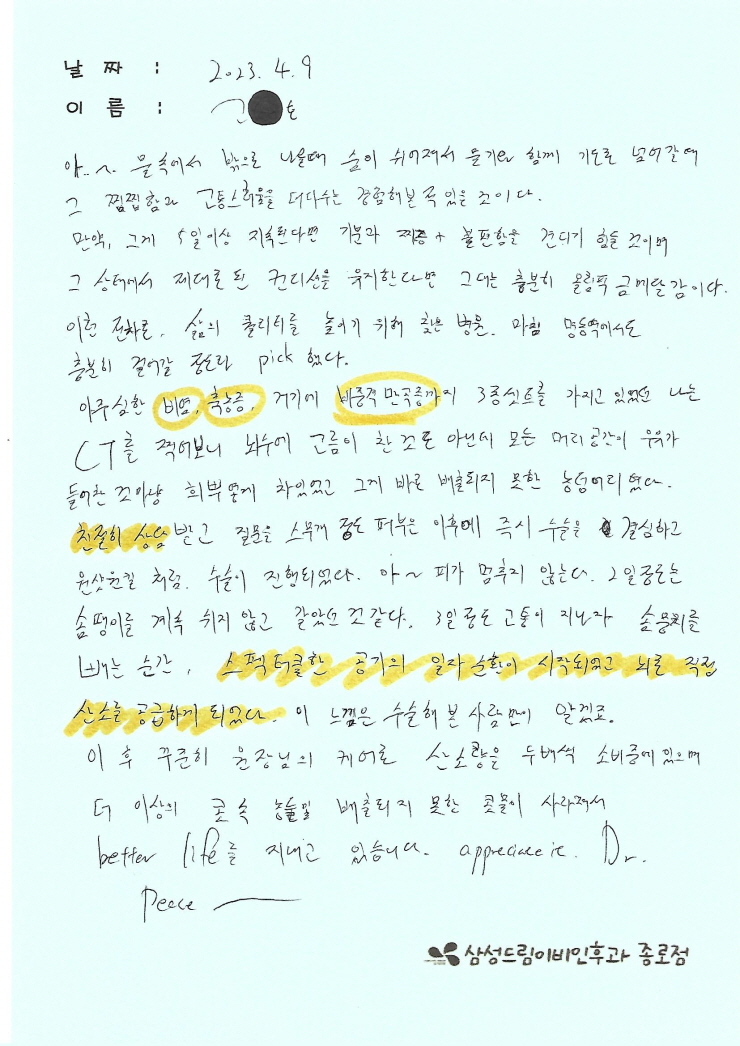 날 짜 : 2023. 4. 9
이 름 : 김 호
아..~ 물속에서 밖으로 나올때 숨이 쉬어져서 물기와 함께 기도로 넘어갈때
그 찝찝함과 고통스러움을 더다수는 경험해본 적 있을 것이다.
만약, 그게 5일이상 지속된다면 기분과 짜증 + 불편함을 견디기 힘들 것이며
그 상태에서 제대로 된 컨디션을 유지한다면 그대는 충분히 올림픽 금메달 감이다.
이런 전차로, 삶의 퀄리티를 높이기 위해 찾은 병원. 마침 명동역에서도
충분히 걸어갈 정도라 pick 했다.
아주 심한 비염, 축농증, 거기에 비중격 만곡증까지 3종셋트를 가지고 있었던 나는
CT를 찍어보니 뇌수에 고름이 찬 것도 아닌데 모든 머리 공간이 우유가
들어찬 것 마냥 희뿌옇게 차있었고 그게 바로 배출되지 못한 농덩어리였다.
친절히 상담 받고 질문을 스무개 정도 퍼부은 이후에 즉시 수술을 결심하고
원샷원킬 처럼. 수술이 진행되었다. 아~ 피가 멈추지 않는다. 2일 정도는
솜뭉이를 계속 쉬지 않고 갈았던 것 같다. 3일 정도 고통이 지나자 솜뭉치를
빼는 순간, 스펙터클한 공기의 일자순환이 시작되었고 뇌로 직접
산소를 공급하게 되었다. 이 느낌은 수술해 본 사람만이 알겠죠.
이 후 꾸준히 원장님의 케어로 산소량을 두배씩 소비중에 있으며
더 이상의 콧 속 농물및 배출되지 못한 콧물이 사라져서
better life를 지내고 있습니다. appreciate it. Dr.
Peace
삼성드림이비인후과 종로점